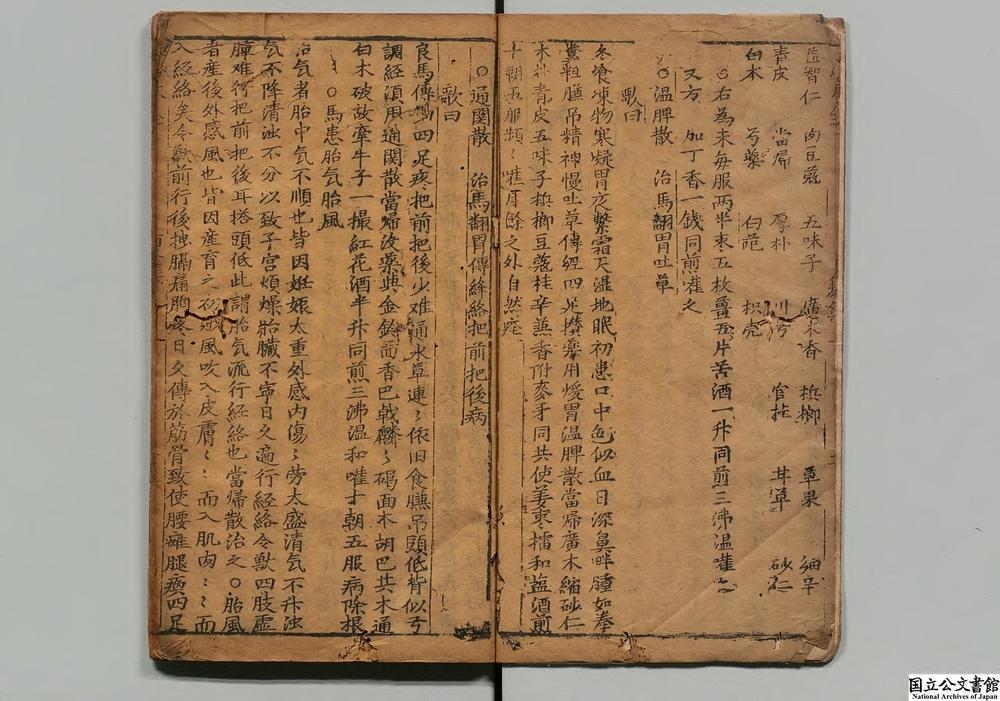 益智仁 肉豆蔻 五味子 廣木香 梹榔 草果 細辛
青皮 當帰 厚朴 川芎 官桂 甘草 砂仁
白朮 芍藥 白芷 枳壳
○右為末每服两半枣五枚薑五片苦酒一升同煎三沸温嚾之
又方 加丁香一錢同前嚾之
○温脾散 治馬翻胃吐草
歌曰
冬飡凍物寒凝胃夜繫霜天濕地眠初患口中色似血日深鼻畔腫如拳
糞粗臕吊精神慢吐草傳經四足攅藥用煖胃温脾散當帰廣木縮砂仁
木朴青皮五味子梹榔豆蔻桂辛兼香附麥芽同共使姜枣擂和盐酒煎
十朝五服頻〻嚾月餘之外自然痊
○通関散 治馬翻胃傳絳絡把前把後病
歌曰
良馬傳 四足疼把前把後少难通水草連〻依旧食臕吊頭低背似弓
調經湏用通関散當帰没藥共金鈴茴香巴戟麟〻碣面木胡巴共木通
白朮破故牽牛子一撮紅花酒半升同煎三沸温和嚾十朝五服病除根
○馬患胎气胎風
治气者胎中气不順也皆因姙娠太重外感内傷〻劳太盛清气不升浊
气不降清浊不分以致子宫煩燥胎臓不寧日久遍行経絡令獣四肢虚
腫难行把前把後耳搭頭低此謂胎气流行経絡也當帰散治之○胎風
者產後外感風也皆因產育之 風吹入皮膚〻〻而入肌肉〻〻而
入経絡矣令獣前行後拽膈痛胸疼日久傳於筋骨致使腰瘫腿瘓四足
国立公文書館
National Archives of Japan